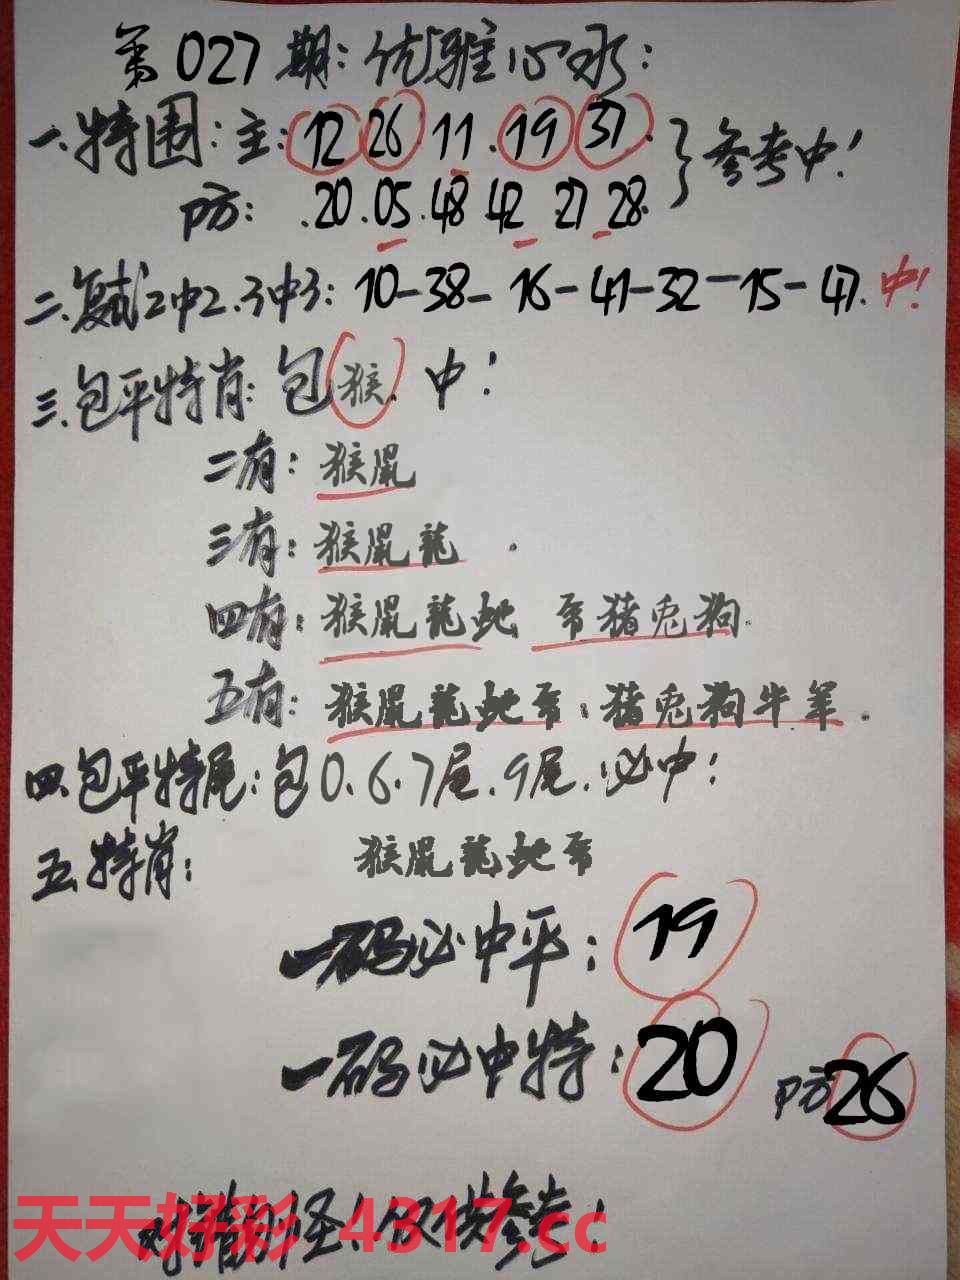 第027期:优雅心水:
一.特围:主:12 26.11.19 37. }参考中!
防:.20.05.48 42 27 28.
二.复试2中2.3中3:10-38-16-41-32-15-47.中!
三.包平特肖:包猴.中!
二有:猴鼠
三有:猴鼠龍.
四有:猴鼠龍蛇 马猪兔狗.
五有:猴鼠龍蛇马.猪兔狗牛羊.
四.包平特尾:包0.6.7尾.9尾.必中!
五.特肖:猴鼠龍蛇马
一码必中平:19
一码必中特:20 防26
对错勿怪!仅供参考!
天天好彩 4317.cc